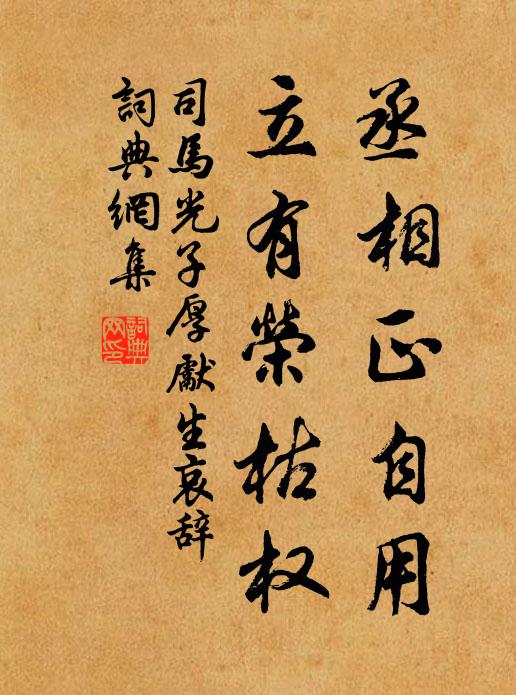 丞相正自用
立有榮枯权
司馬光子厚獻生哀辞
詞典網集
詞典網印